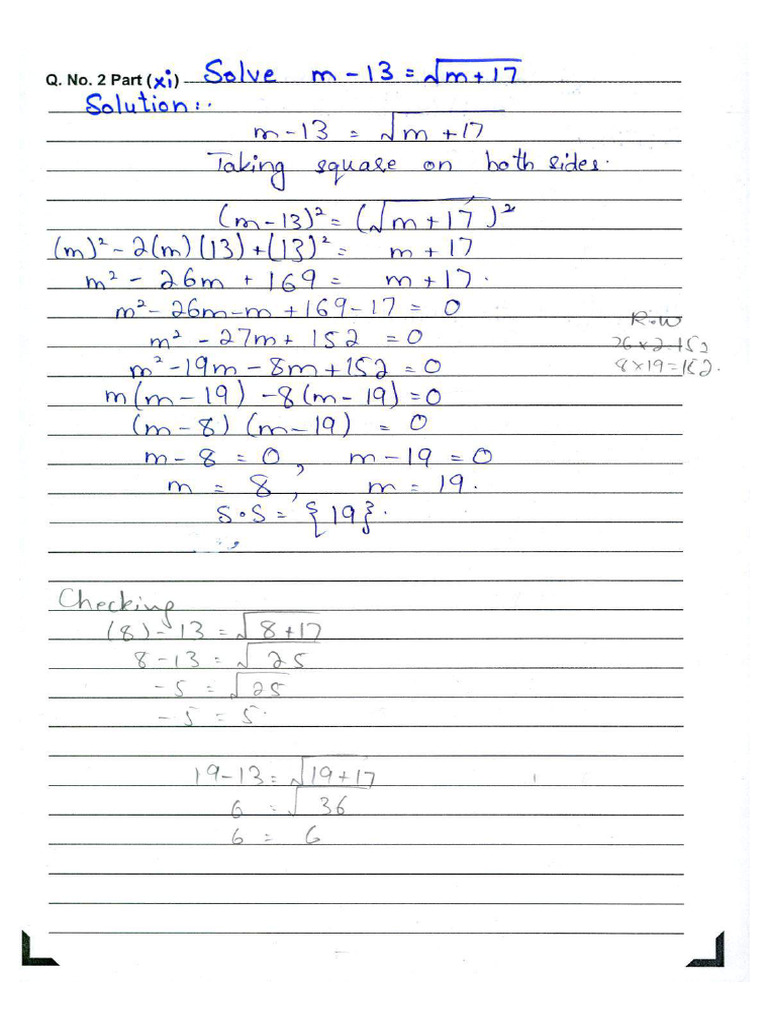 Q. No. 2 Part (xi) Solve m - 13 = √m + 17
Solution:.
m - 13 = √m + 17
Taking square on both sides.
(m - 13)² = (√m + 17)²
(m)² - 2(m)(13) + (13)² = m + 17
m² - 26m + 169 = m + 17.
m² - 26m - m + 169 - 17 = 0
m² - 27m + 152 = 0
m² - 19m - 8m + 152 = 0
m(m - 19) - 8(m - 19) = 0
(m - 8) (m - 19) = 0
m - 8 = 0, m - 19 = 0
m = 8, m = 19.
S.S = {19}.
R.W
26 x 2 152
8 x 19 = 152.
Checking
(8) - 13 = √8 + 17
8 - 13 = √25
- 5 = √25
- 5 = 5.
19 - 13 = √19 + 17
6 = √36
6 = 6